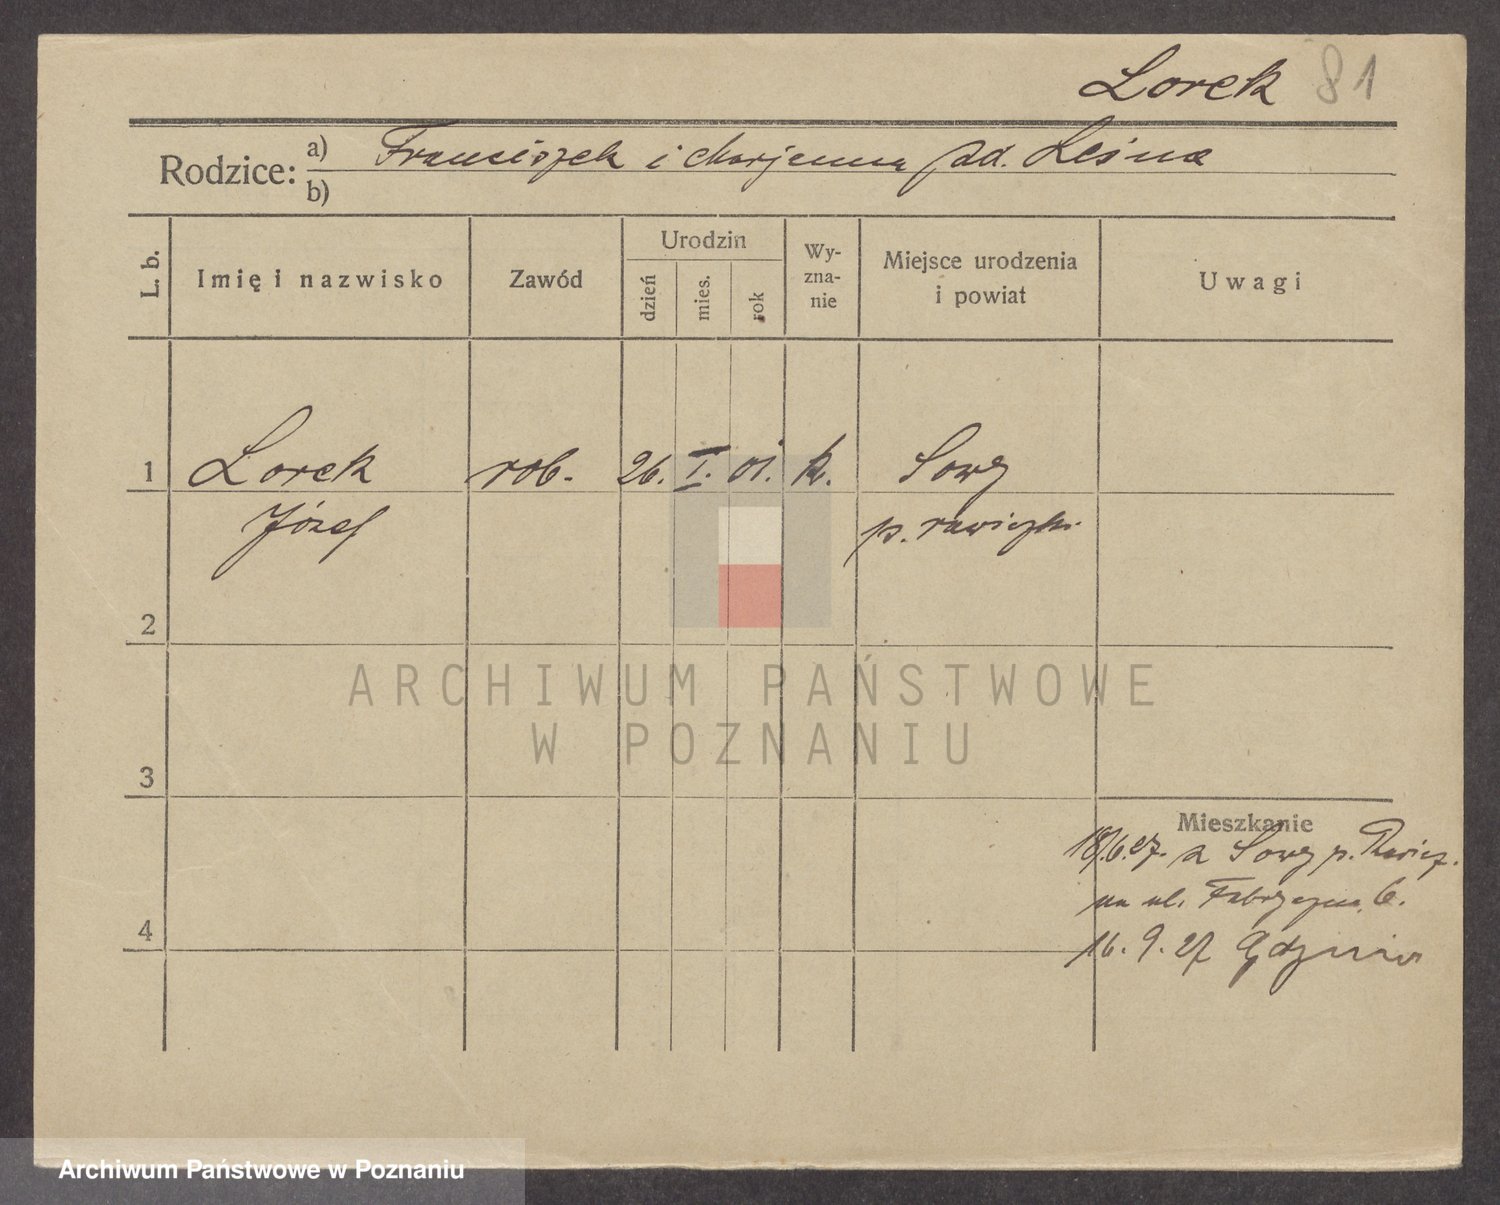 Lorek 81
Rodzice: a) Franciszek i Marjanna zd. Leśna
b)
L. b.
Imię i nazwisko
Zawód
Urodzin
dzień
mies.
rok
Wy-
zna-
nie
Miejsce urodzenia
i powiat
Uwagi
1 Lorek rob. 26. I. 01. k. Sowy
Józef p. rawicki
2
ARCHIWUM PAŃSTWOWE
W POZNANIU
3
Mieszkanie
18/6.27. z Sowy p. Rawicz.
na ul. Fabryczna 6.
4
16. 9. 27 Gdynia
Archiwum Państwowe w Poznaniu